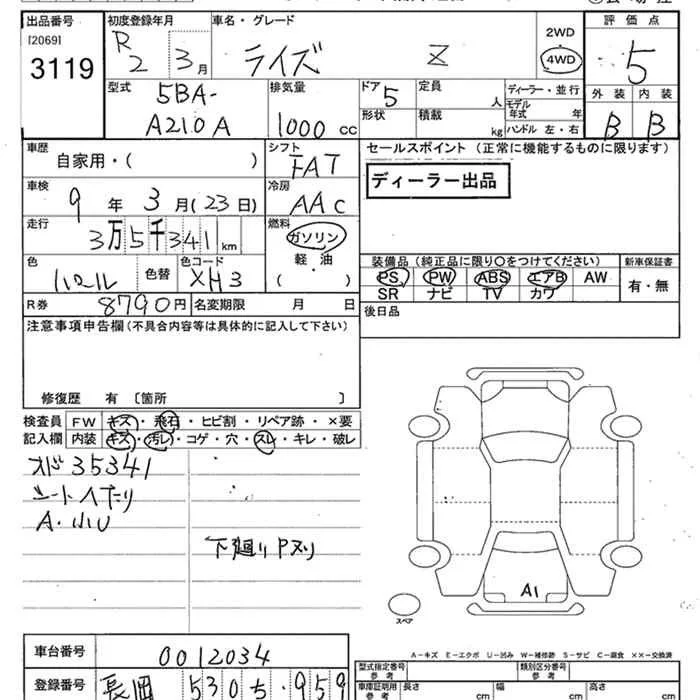 出品番号 初度登録年月 車名・グレード 2WD 評価点
[2069] R 2 3月 ライズ Z 4WD 5
3119
型式 排気量 ドア 定員 ディーラー・並行 外装 内装
5BA- 5 人 モデル年式 年
形状 積載
A210A 1000 cc kg ハンドル 左・右 B B
車歴 シフト セールスポイント (正常に機能するものに限ります)
自家用・( ) FAT
ディーラー出品
車検 冷房
9年 3月(23日) AAC
走行 燃料
3万5千341km ガソリン
軽油
( )
色 色替 色コード 装備品 (純正品に限り○をつけてください) 新車保証書
パール XH3 PS PW ABS エアB AW 有・無
SR ナビ TV カワ
R券 8790円 名変期限 月 日 後日品
注意事項申告欄(不具合内容等は具体的に記入して下さい)
修復歴 有 〔箇所 〕
検査員 FW キズ・飛石・ヒビ割・リペア跡・×要
記入欄 内装 キズ・汚レ・コゲ・穴・スレ・キレ・破レ
オド35341
シートヘたり
A・小U
下廻りPヌリ
A1
スペア
A−キズ E−エクボ U−凹み W−補修跡 S−サビ C−腐食 ××−交換済
車台番号 0012034
型式指定番号 参考 類別区分番号 参考
登録番号 長岡 530 ち・959
車庫証明用 参考 長さ cm 幅 cm 高さ cm